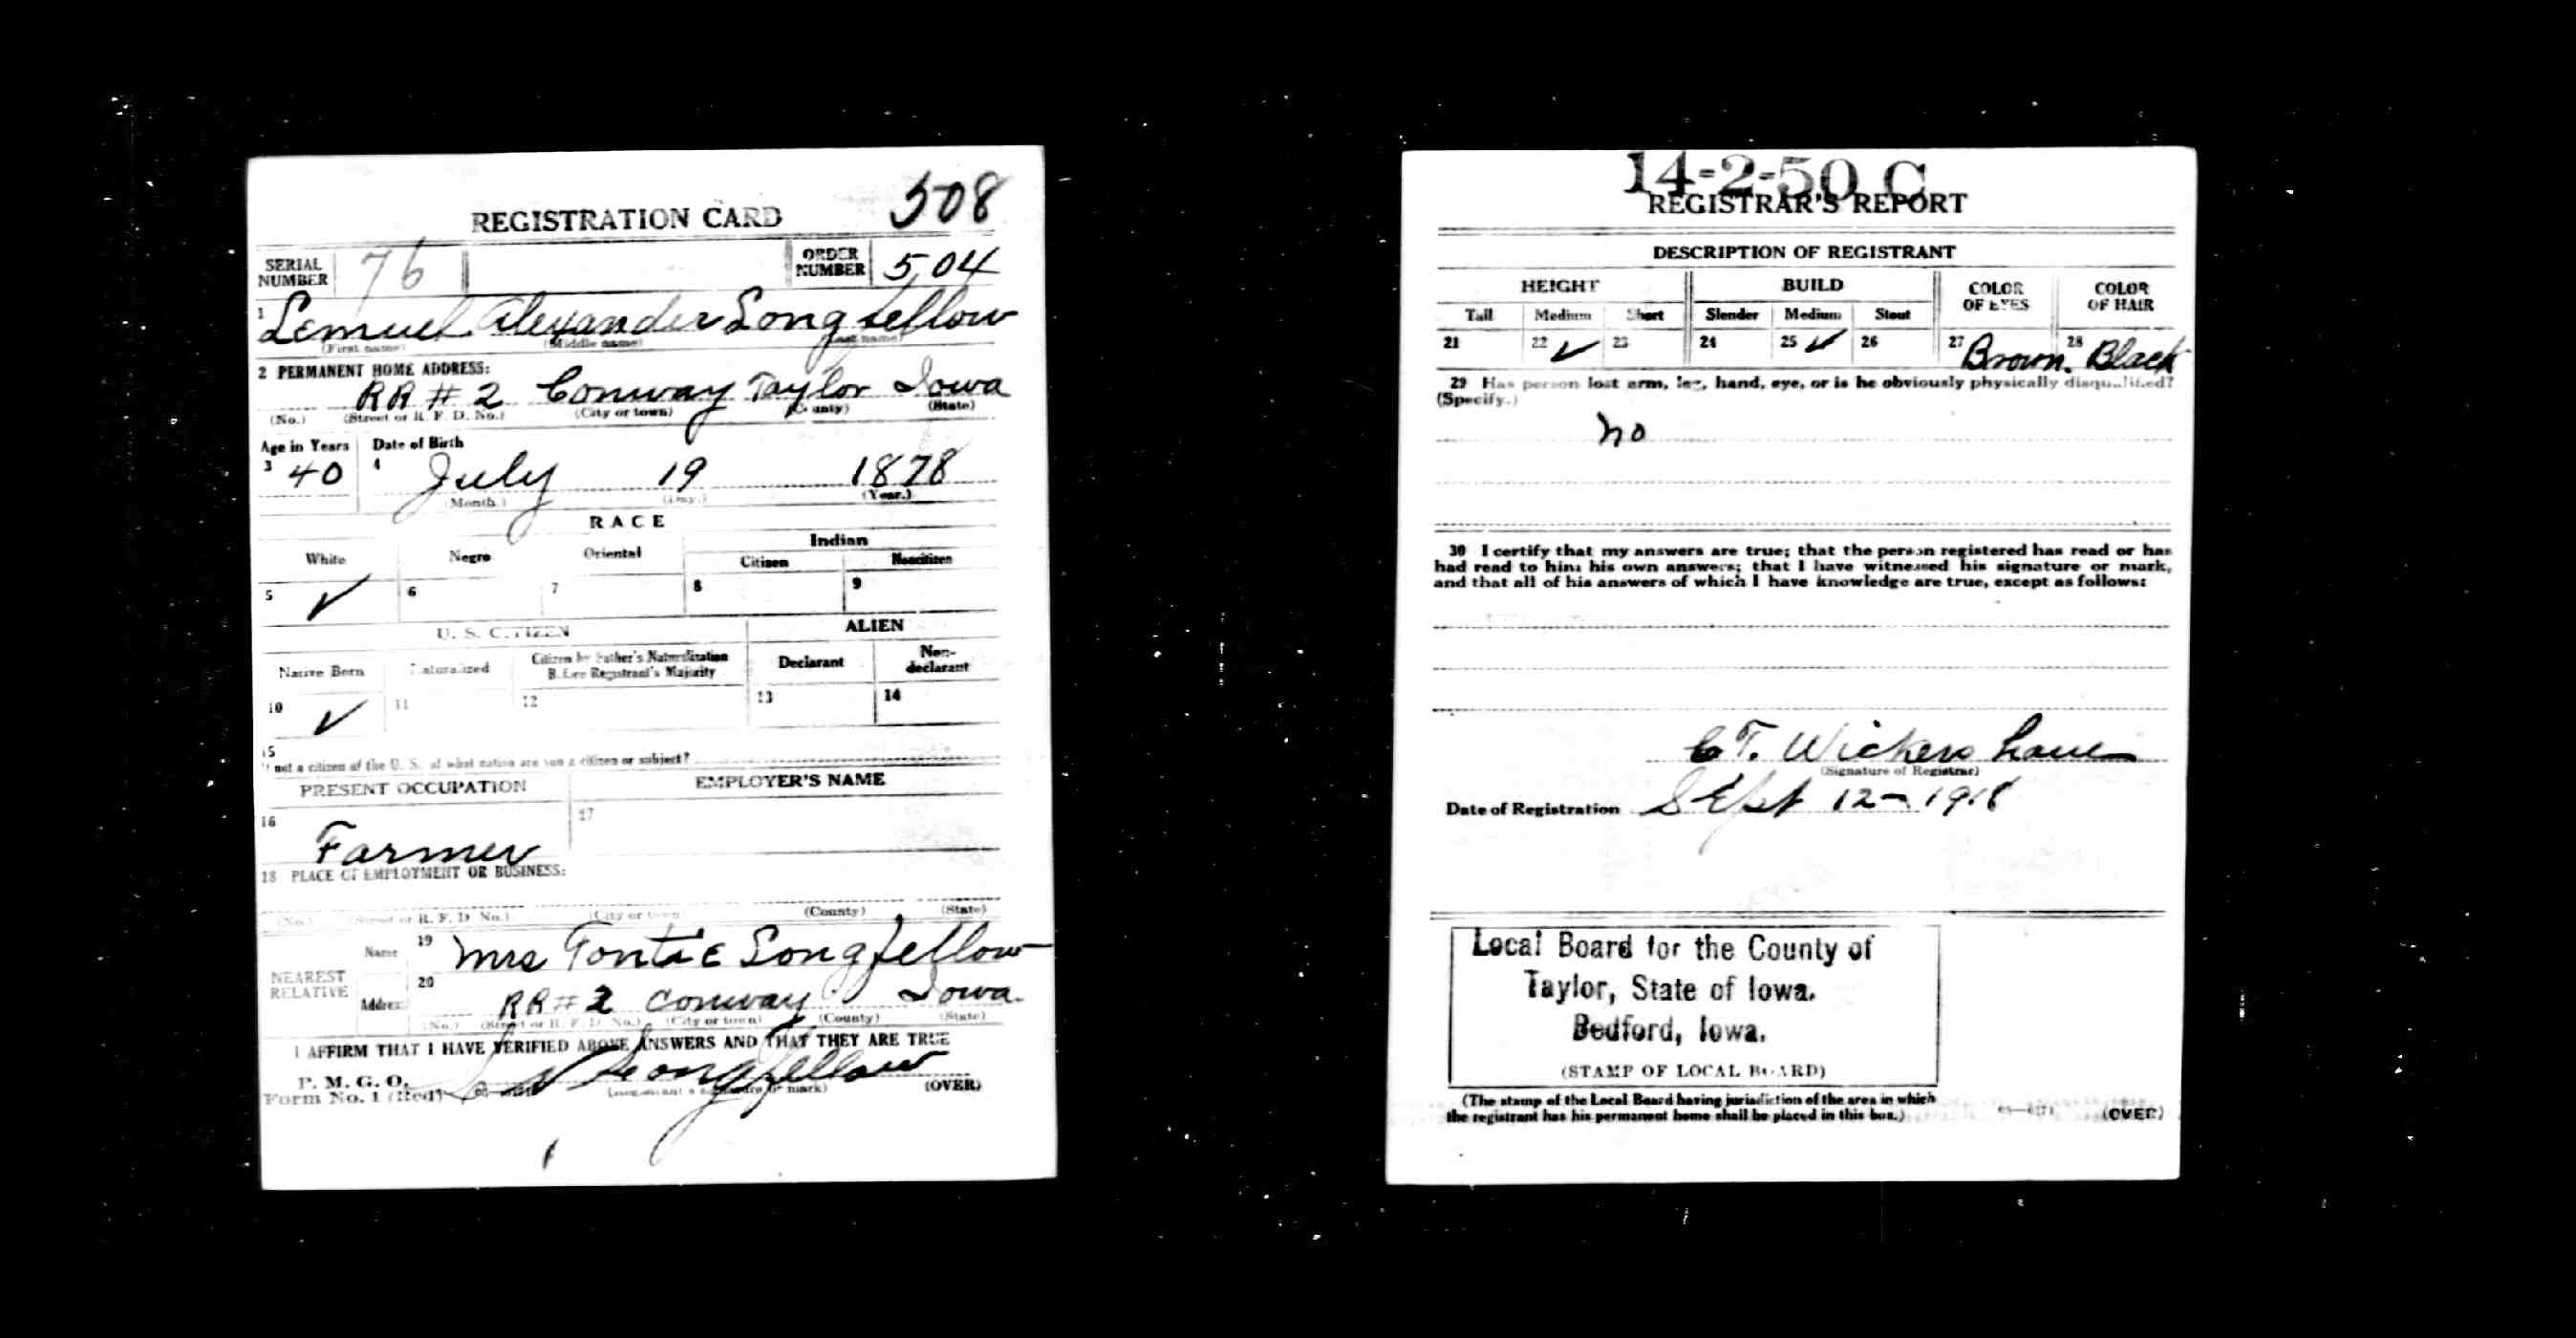 508
REGISTRATION CARD
SERIAL NUMBER 76 ORDER NUMBER 504
1 Lemuel Alexander Longfellow
(First name) (Middle name) (Last name)
2 PERMANENT HOME ADDRESS:
RR # 2 Conway Taylor Iowa
(No.) (Street or R. F. D. No.) (City or town) (County) (State)
Age in Years Date of Birth
3 40 4 July 19 1878
(Month.) (Day.) (Year.)
RACE
White Negro Oriental Indian
Citizen Noncitizen
5 ✓ 6 7 8 9
U. S. CITIZEN ALIEN
Native Born Naturalized Citizen by Father's Naturalization Before Registrant's Majority Declarant Non-declarant
10 ✓ 11 12 13 14
15
If not a citizen of the U. S. of what nation are you a citizen or subject?
PRESENT OCCUPATION EMPLOYER'S NAME
16 Farmer 17
18 PLACE OF EMPLOYMENT OR BUSINESS:
(No.) (Street or R. F. D. No.) (City or town) (County) (State)
NEAREST RELATIVE
Name 19 Mrs Tontie Longfellow
Address 20 RR # 2 Conway Iowa.
(No.) (Street or R. F. D. No.) (City or town) (County) (State)
I AFFIRM THAT I HAVE VERIFIED ABOVE ANSWERS AND THAT THEY ARE TRUE
P. M. G. O.
Form No. 1 (Red) Longfellow (OVER)
(Registrant's signature or mark)
14-2-50 C
REGISTRAR'S REPORT
DESCRIPTION OF REGISTRANT
HEIGHT BUILD COLOR OF EYES COLOR OF HAIR
Tall Medium Short Slender Medium Stout
21 22 ✓ 23 24 25 ✓ 26 27 Brown. 28 Black
29 Has person lost arm, leg, hand, eye, or is he obviously physically disqualified?
(Specify.)
no
30 I certify that my answers are true; that the person registered has read or has
had read to him his own answers; that I have witnessed his signature or mark,
and that all of his answers of which I have knowledge are true, except as follows:
C T. Wickersham
(Signature of Registrar)
Date of Registration Sept 12-1918
Local Board for the County of
Taylor, State of Iowa.
Bedford, Iowa.
(STAMP OF LOCAL BOARD)
(The stamp of the Local Board having jurisdiction of the area in which
the registrant has his permanent home shall be placed in this box.)
(OVER)